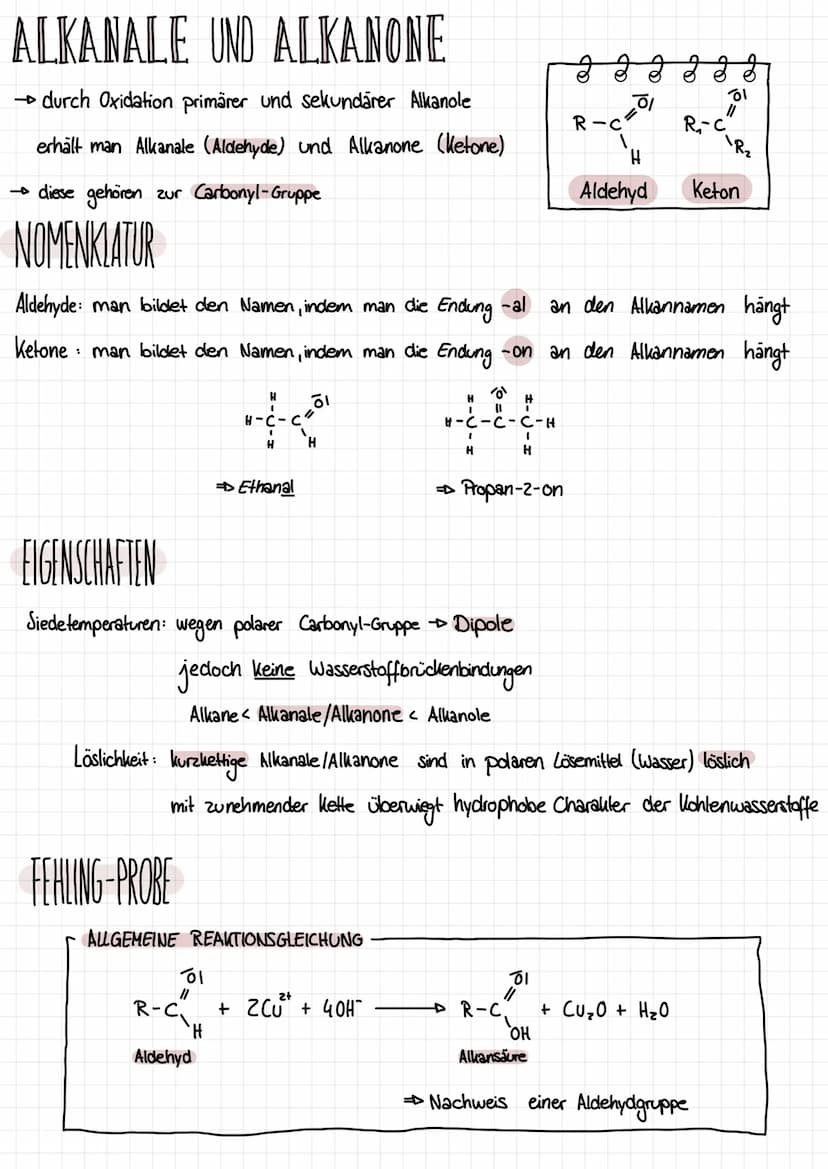 ALKANALE UND ALKANONE
→ durch Oxidation primärer und sekundärer Alkanole
erhält man Alkanale (Aldehyde) und Alkanone (Ketone)
→ diese gehören zur Carbonyl-Gruppe
R-C O H
R₁-C O R₂
Aldehyd Keton
NOMENKLATUR
Aldehyde: man bildet den Namen, indem man die Endung -al an den Alkannamen hängt
Ketone: man bildet den Namen, indem man die Endung -on an den Alkannamen hängt
H O H O H
H-C-C H-C-C-C-H
H H H H
⇒ Ethanal ⇒ Propan-2-on
EIGENSCHAFTEN
Siedetemperaturen: wegen polarer Carbonyl-Gruppe → Dipole
jedoch keine Wasserstoffbrückenbindungen
Alkane < Alkanale/Alkanone < Alkanole
Löslichkeit: kurzkettige Alkanale/Alkanone sind in polaren Lösemittel (Wasser) löslich
mit zunehmender Kette überwiegt hydrophobe Charakter der Kohlenwasserstoffe
FEHLING-PROBE
ALLGEMEINE REAKTIONSGLEICHUNG
O O
R-C + 2Cu²⁺ + 4OH⁻ → R-C + Cu₂O + H₂O
H OH
Aldehyd Alkansäure
⇒ Nachweis einer Aldehydgruppe